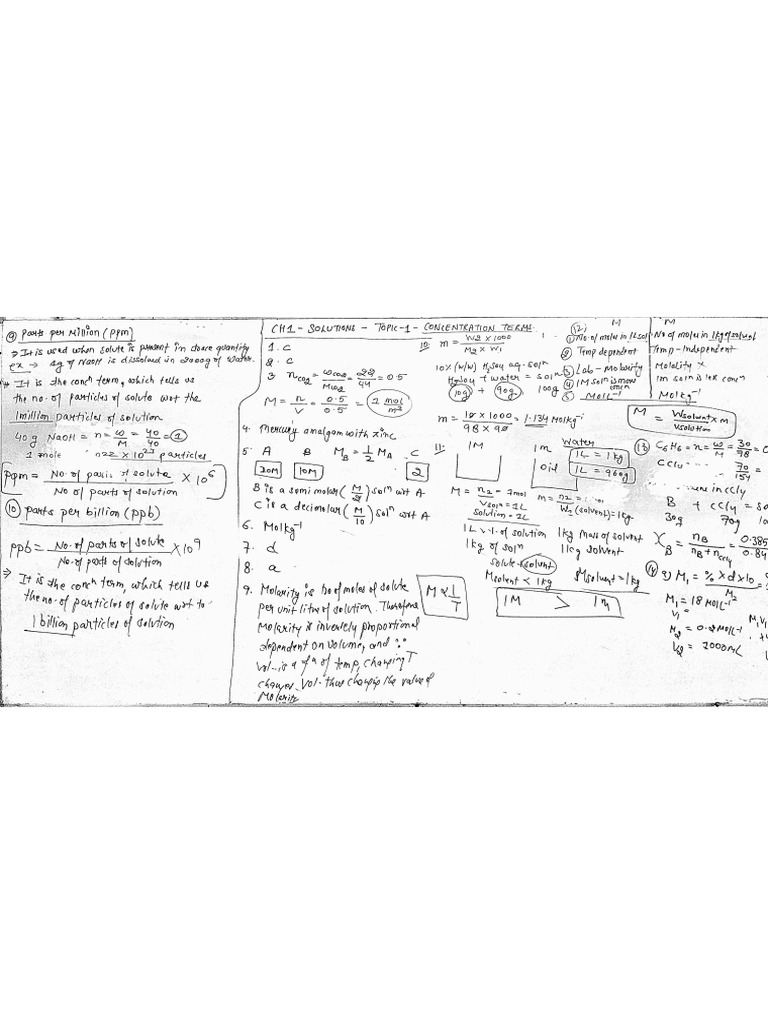 ⑨ Parts per Million (ppm)
⇒ It is used when solute is present in trace quantity
ex → 1g of NaOH is dissolved in 2000g of water.
It is the concⁿ term, which tells us
the no. of particles of solute wrt the
1 million particles of solution
40 g NaOH = n = w/M = 40/40 = ①
1 mole 6.022 × 10²³ particles
ppm = No. of parts of solute / No of parts of solution × 10⁶
⑩ Parts per billion (ppb)
ppb = No. of parts of solute / No. of parts of solution × 10⁹
⇒ It is the concⁿ term, which tells us
the no. of particles of solute wrt to
1 billion particles of solution
CH1 - SOLUTIONS - TOPIC-1 - CONCENTRATION TERMS
1. C
2. C
3 nCO2 = WCO2/MCO2 = 22/44 = 0.5
M = n/V = 0.5/0.5 = 1 mol/m³
4. Mercury amalgam with zinc
5. A B MB = 1/2 MA C
20M 10M 2
B is a semi molar (M/2) solⁿ wrt A
C is a decimolar (M/10) solⁿ wrt A
6. Molkg⁻¹
7. d
8. a
9. Molarity is no of moles of solute
per unit litre of solution. Therefore
Molarity is inversely proportional
dependent on volume, and ∵
vol. is a fⁿ of temp, changing T
changes vol. thus changing the value of
Molarity
M ∝ 1/T
10. m = W2 × 1000 / M2 × W1
10% (W/W) H2SO4 aq. solⁿ
H2SO4 + water = solⁿ
10g + 90g 100g
m = 10 × 1000 / 98 × 90 = 1.134 Molkg⁻¹
11. 1M 1m Water
1L = 1kg
Oil 1L = 960g
M = n2 / Vsolⁿ = 1L
Solution = 1L
W2 (solvent) = 1kg
1L of solution 1kg mass of solvent
1kg of solⁿ 1kg solvent
Solute + solvent
Msolvent < 1kg Msolvent = 1kg
1M > 1m
12. M m
① No. of moles in 1L solⁿ No of moles in 1kg of solvent
② Temp dependent Temp-Independent
③ Lab - Molarity Molality X
④ 1M solⁿ is more concⁿ 1m solⁿ is less concⁿ
⑤ MolL⁻¹ Molkg⁻¹
M = Wsolvent × m / Vsolution
⑬ C6H6 = n = w/M = 30/78
CCl4 70/154
in CCl4
B + CCl4 =
30g 70g
XB = nB / nB + nCCl4 = 0.385
⑭ a) M1 = % × d × 10 / M2
M1 = 18 MolL⁻¹
V1
M2 = MolL⁻¹
V2 = 1000mL
M1V1